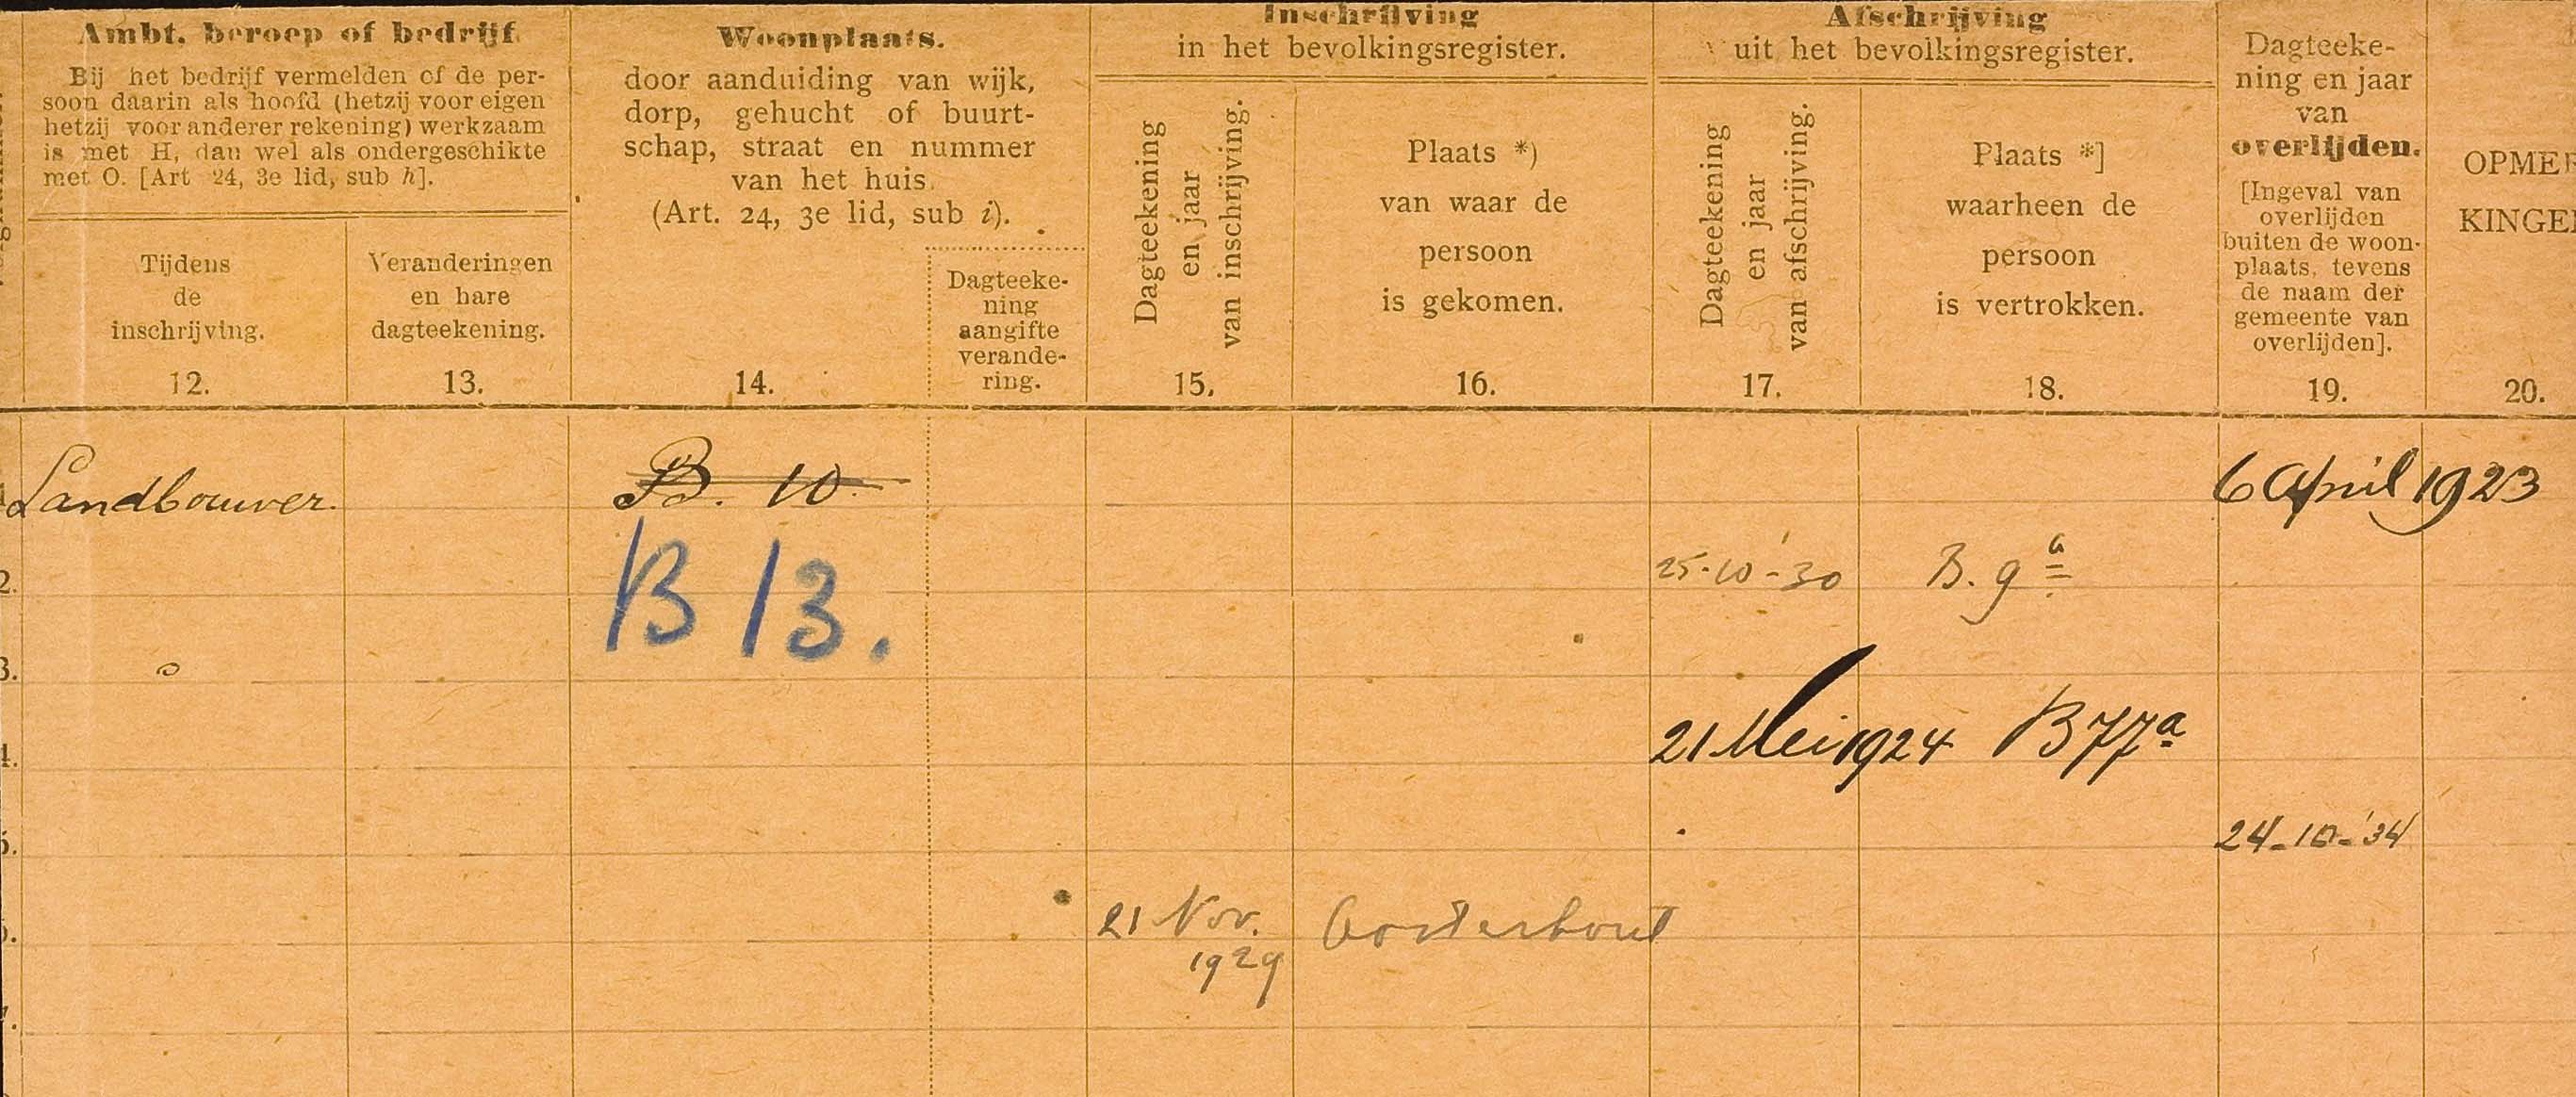 Ambt. beroep of bedrijf.
Bij het bedrijf vermelden of de per-
soon daarin als hoofd (hetzij voor eigen
hetzij voor anderer rekening) werkzaam
is met H, dan wel als ondergeschikte
met O. [Art 24, 3e lid, sub h].
Tijdens
de
inschrijving.
12.
Veranderingen
en hare
dagteekening.
13.
Woonplaats.
door aanduiding van wijk,
dorp, gehucht of buurt-
schap, straat en nummer
van het huis.
(Art. 24, 3e lid, sub i).
14.
Dagteeke-
ning
aangifte
verande-
ring.
Inschrijving
in het bevolkingsregister.
Dagteekening
en jaar
van inschrijving.
15.
Plaats *)
van waar de
persoon
is gekomen.
16.
Afschrijving
uit het bevolkingsregister.
Dagteekening
en jaar
van afschrijving.
17.
Plaats *]
waarheen de
persoon
is vertrokken.
18.
Dagteeke-
ning en jaar
van
overlijden.
[Ingeval van
overlijden
buiten de woon-
plaats, tevens
de naam der
gemeente van
overlijden].
19.
OPMER
KINGE
20.
Landbouwer. B. 10. 6 April 1923
2. B 13. 25-10-'30 B. 9 a
3.
4. 21 Mei 1924 B 77a
5. 24-10-'34
6. 21 Nov. Oosterhout
1929
7.